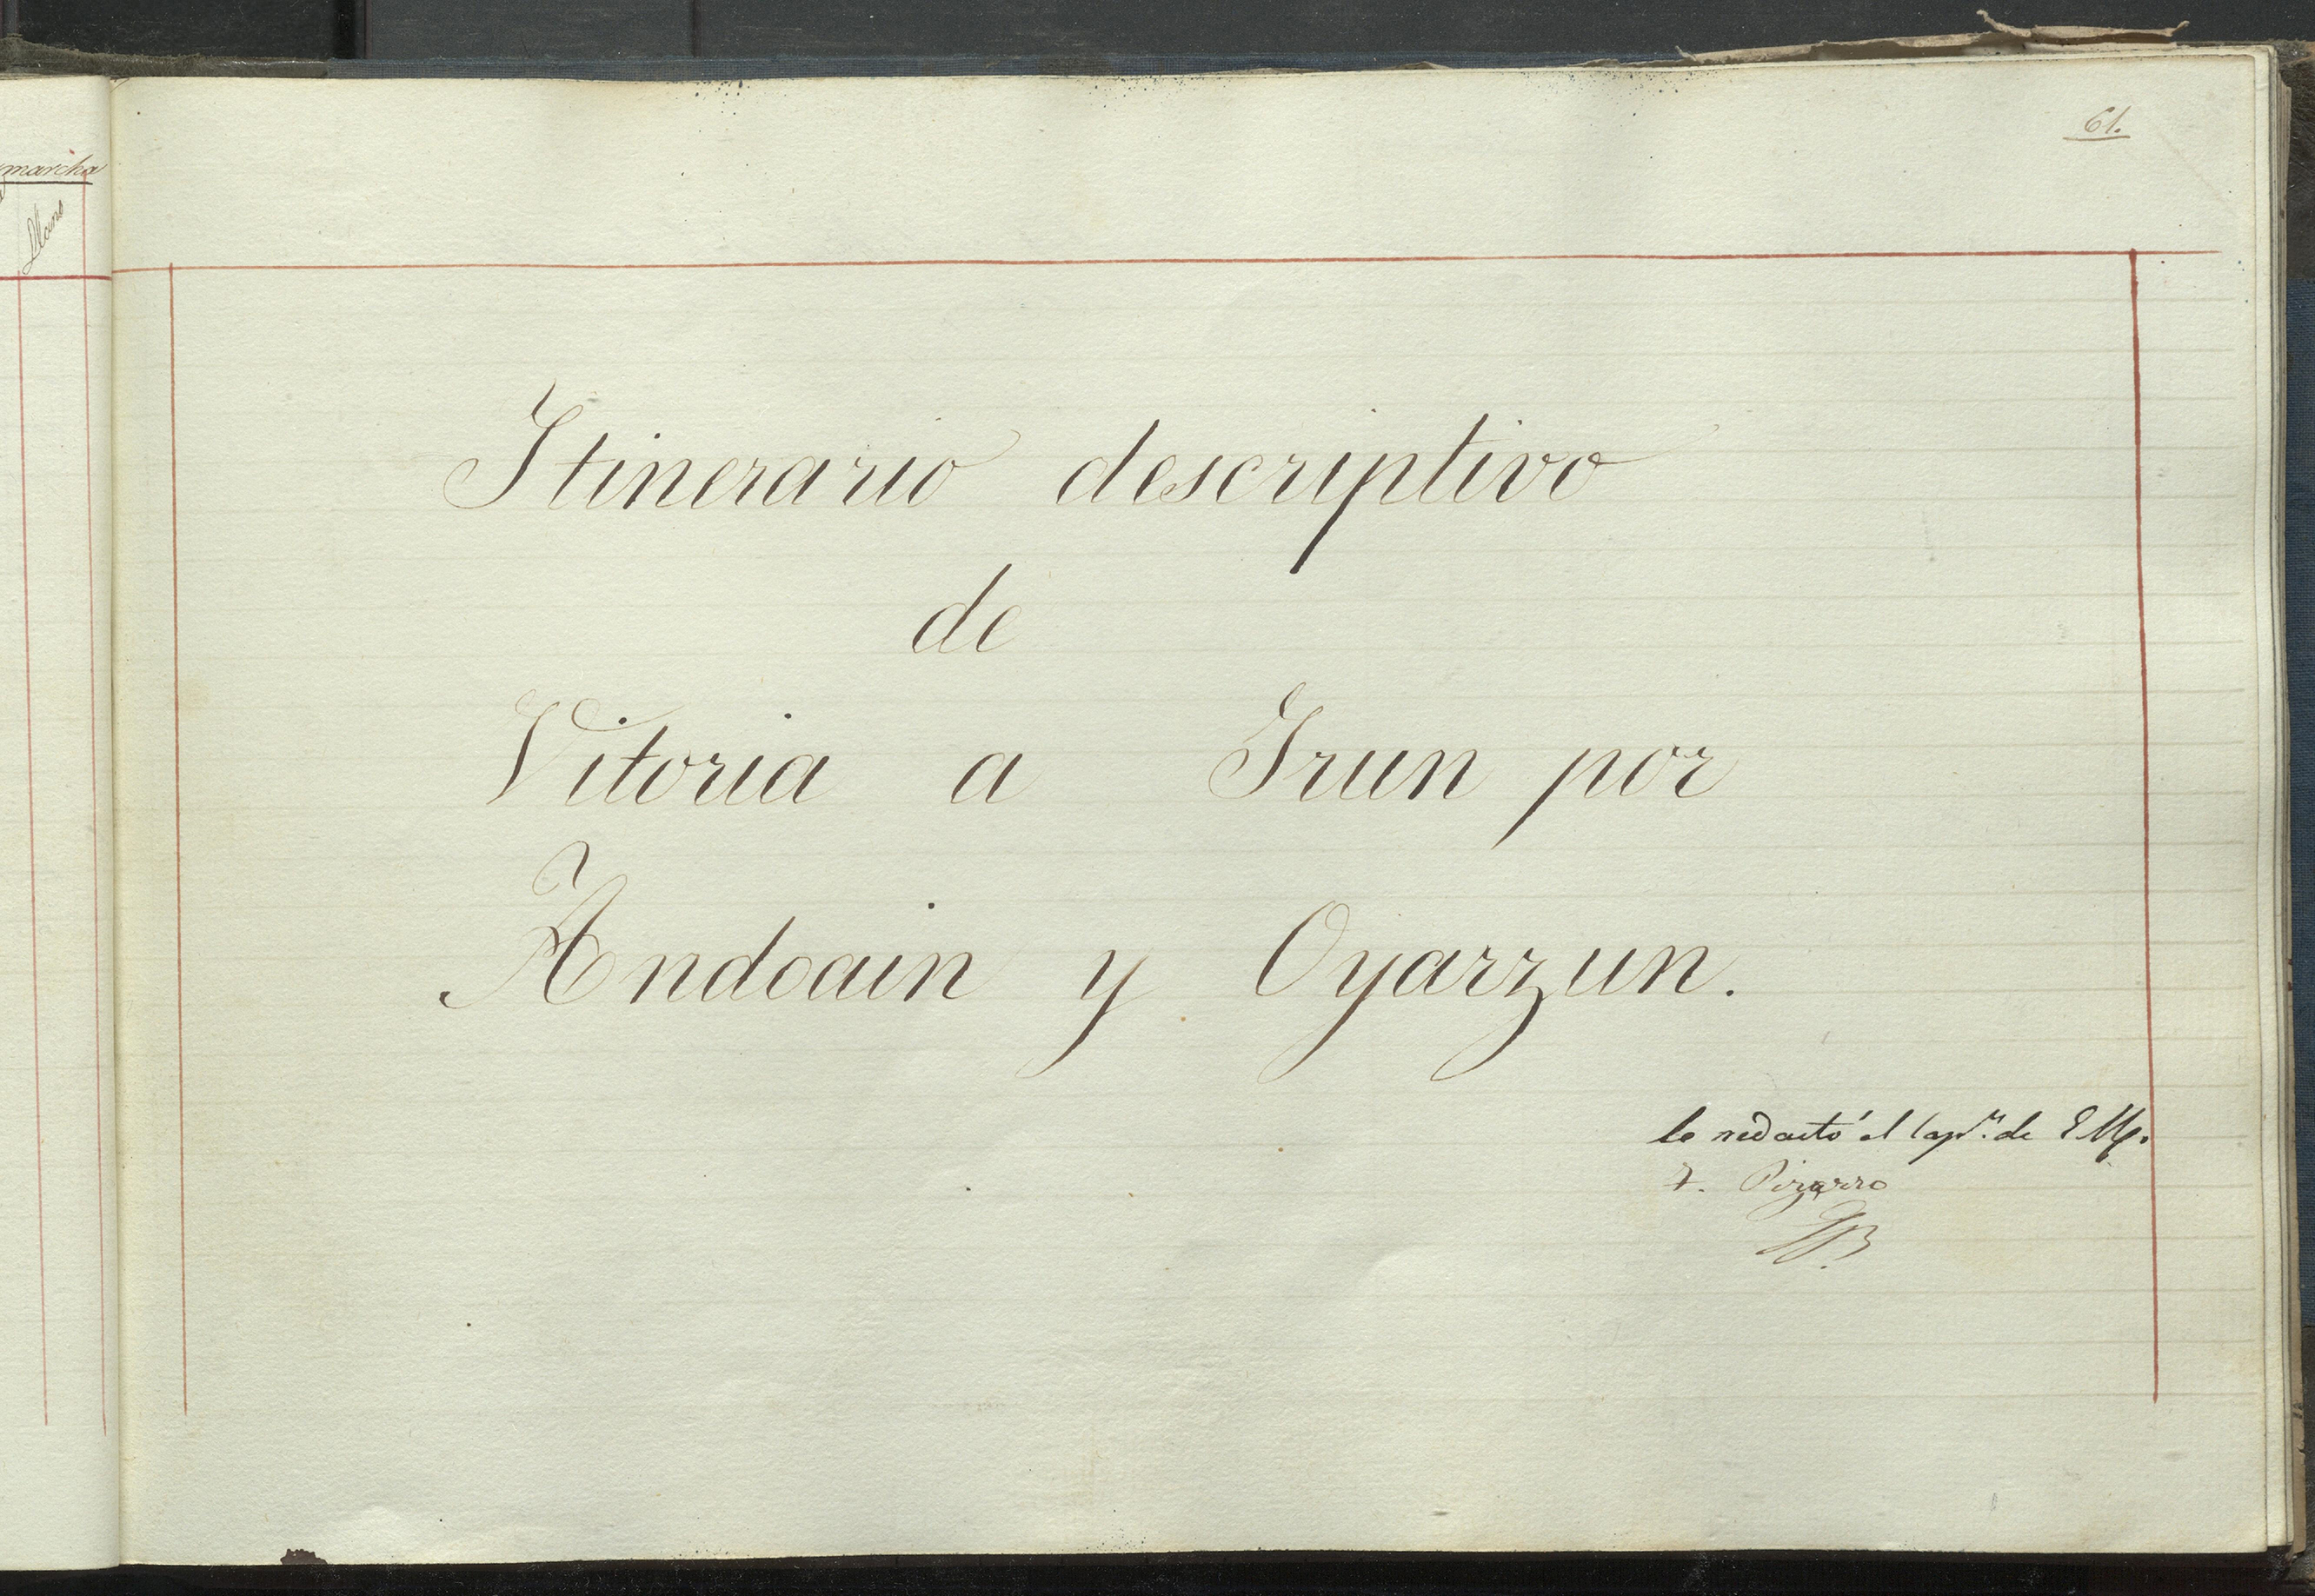 marcha
Llano
61.
Itinerario descriptivo
de
Vitoria a Irun por
Andoain y Oyarzun.
lo redactó el Capn. de E. M.
F. Pizarro